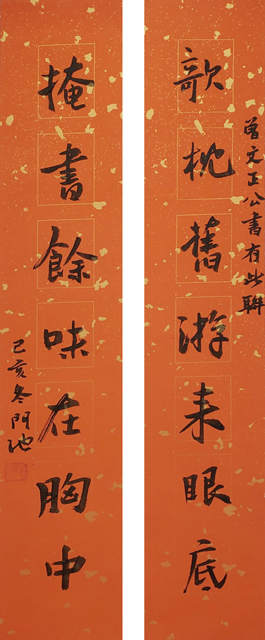 曾文正公書有此聯
欹枕舊游來眼底
掩書餘味在胸中
己亥冬